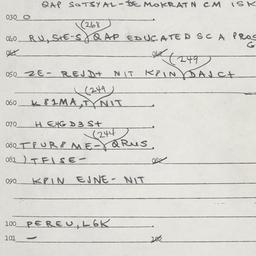 QAP SOTSYAL-DEMOKRATN CM ISK
030 O
(268)
040 RU, SHE-S QAP EDUCATED SC A PROS
(249)
050 ZE- REJD+ NIT KPIN DAJC+
(249)
060 K81MA, T NIT
070 H E4G D3 S+
(244)
080 TPUR8 ME- QRUS
081 ) TFISE-
090 KPIN EJNE- NIT
100 PEREU, LGK
101 -